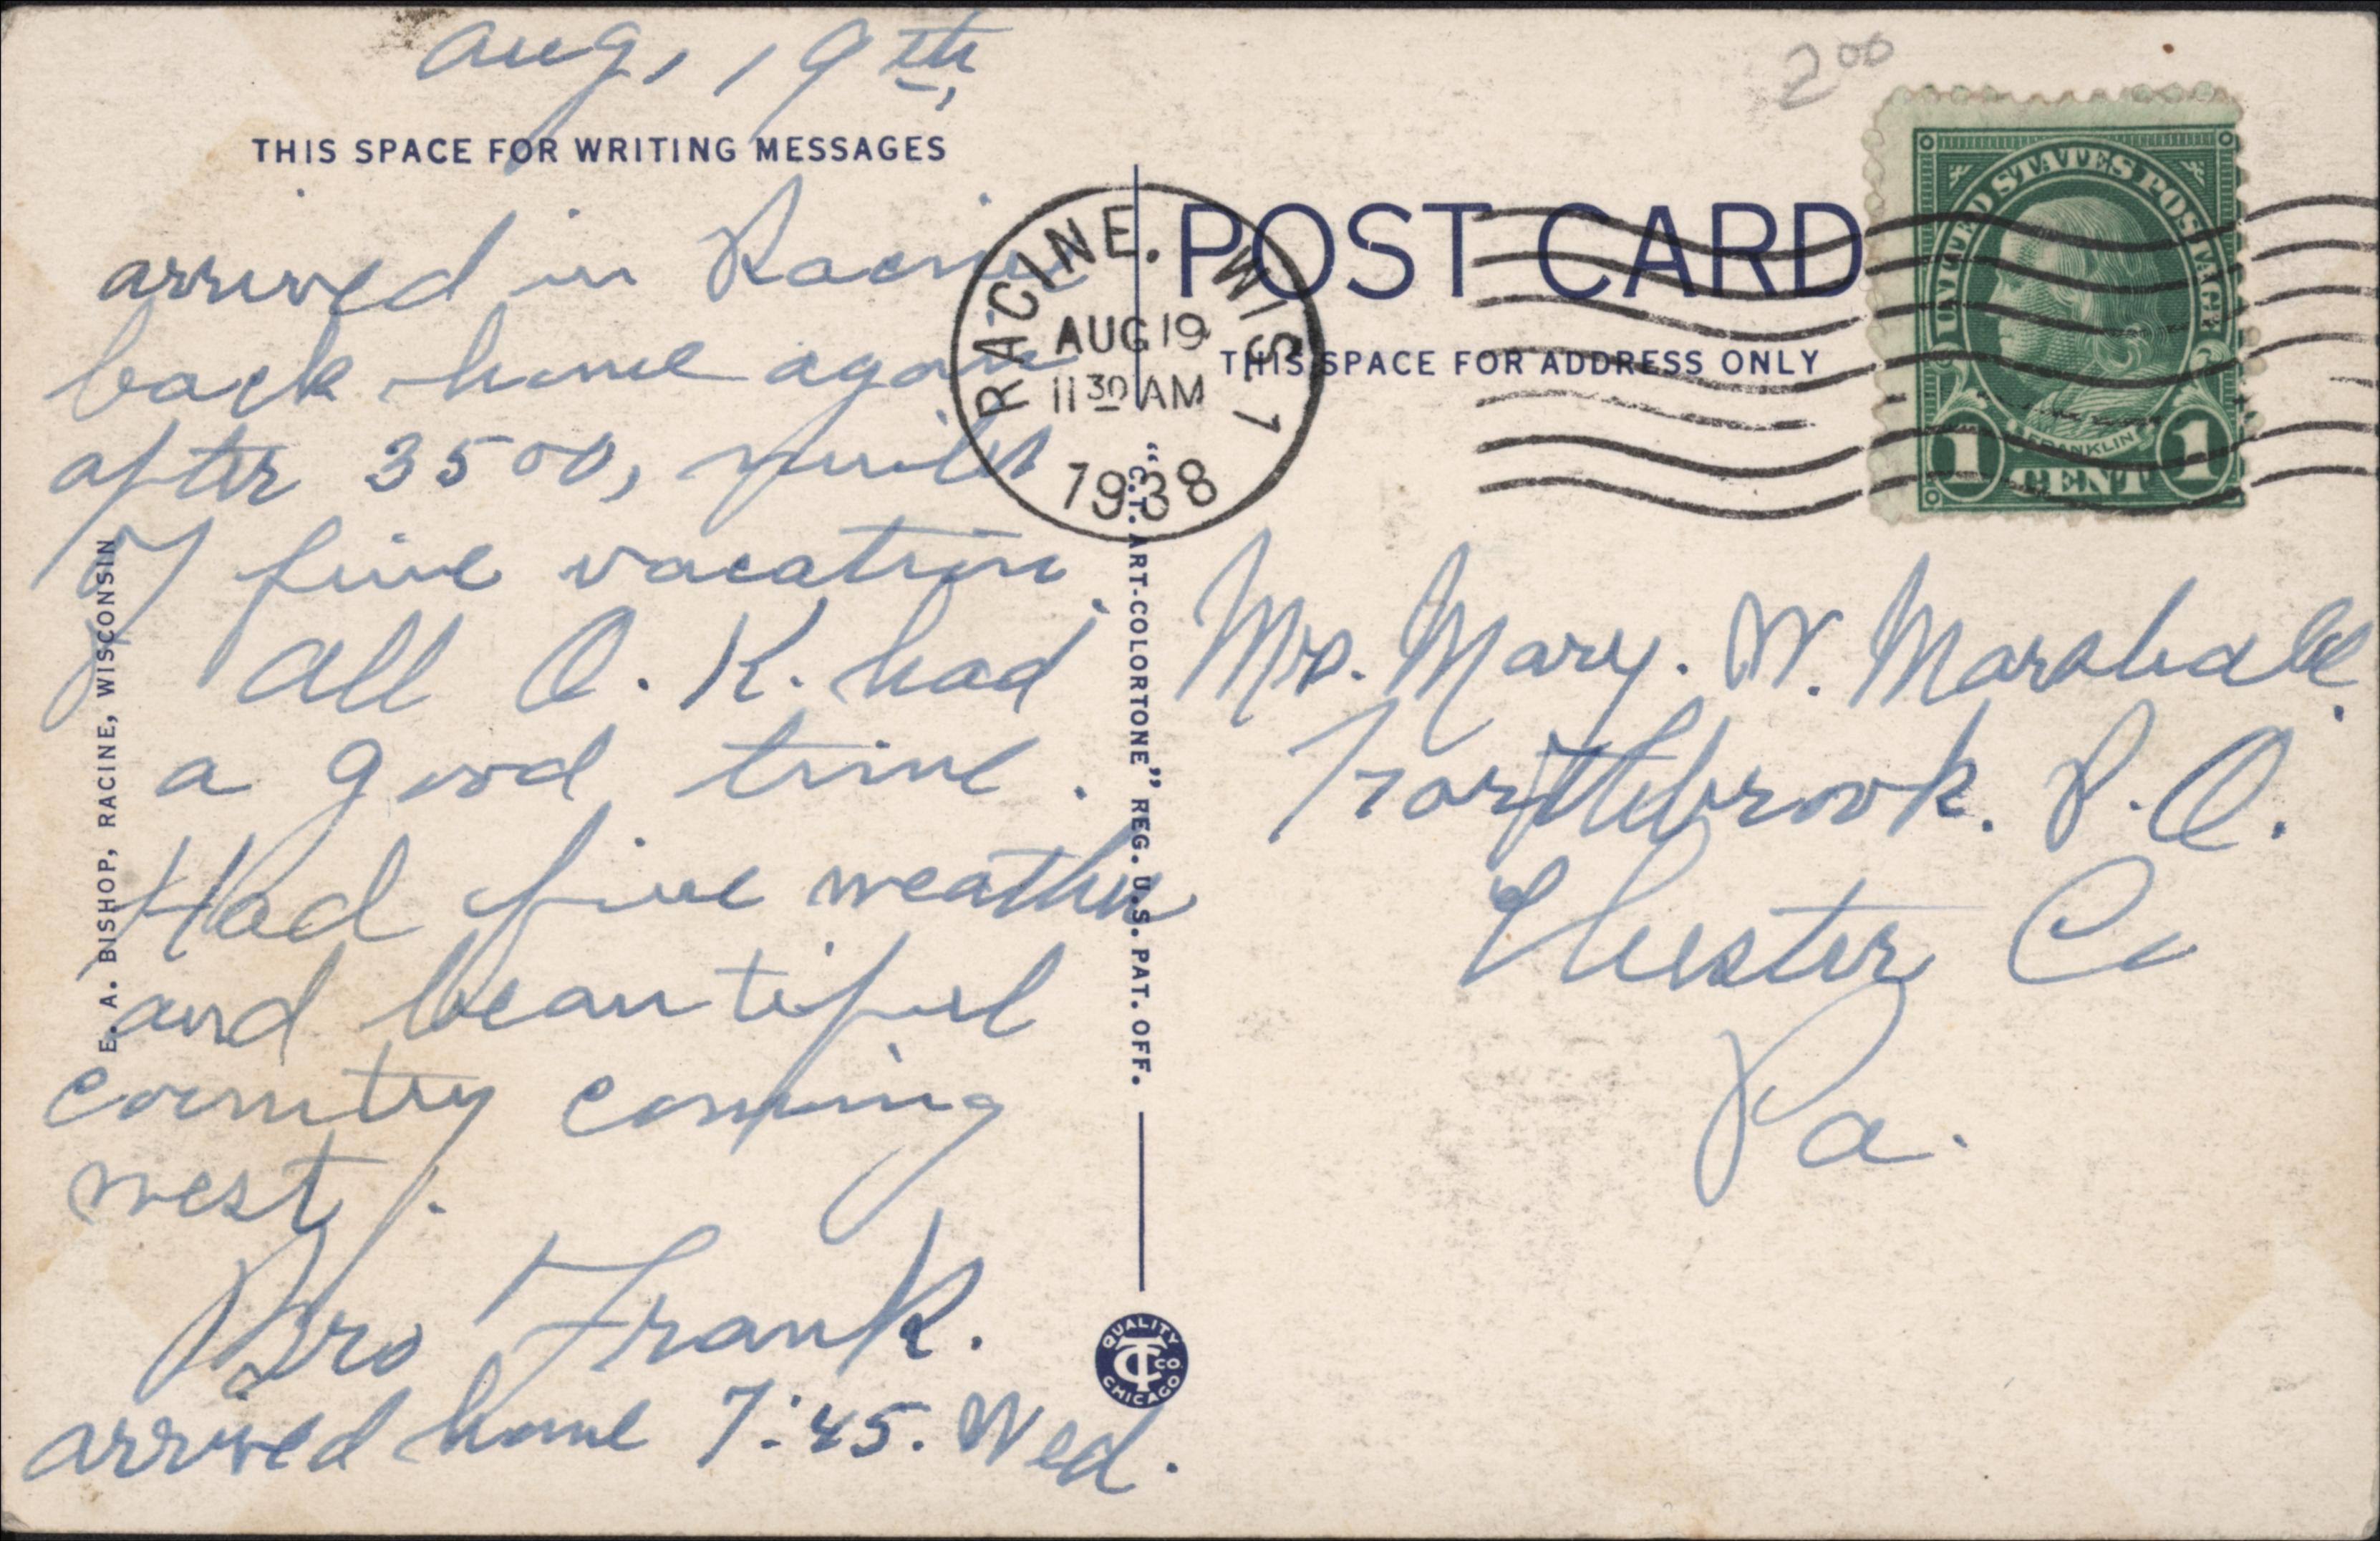 Aug, 19th,
THIS SPACE FOR WRITING MESSAGES
arrived in Racine
back home again
after 3500, miles
of fine vacation.
All O.K. had
a good time.
Had fine weather
and beautiful
country coming
west.
Bro Frank.
arrived home 7:45. Wed.
E. A. BISHOP, RACINE, WISCONSIN
RACINE. WIS. 1
AUG 19
11 30 AM
1938
"C.T. ART-COLORTONE" REG. U.S. PAT. OFF.
QUALITY
CT CO.
CHICAGO
2 00
POST CARD
THIS SPACE FOR ADDRESS ONLY
UNITED STATES POSTAGE
FRANKLIN
1 CENT 1
Mrs. Mary. W. Marshall.
Northbrook. P.O.
Chester Co
Pa.